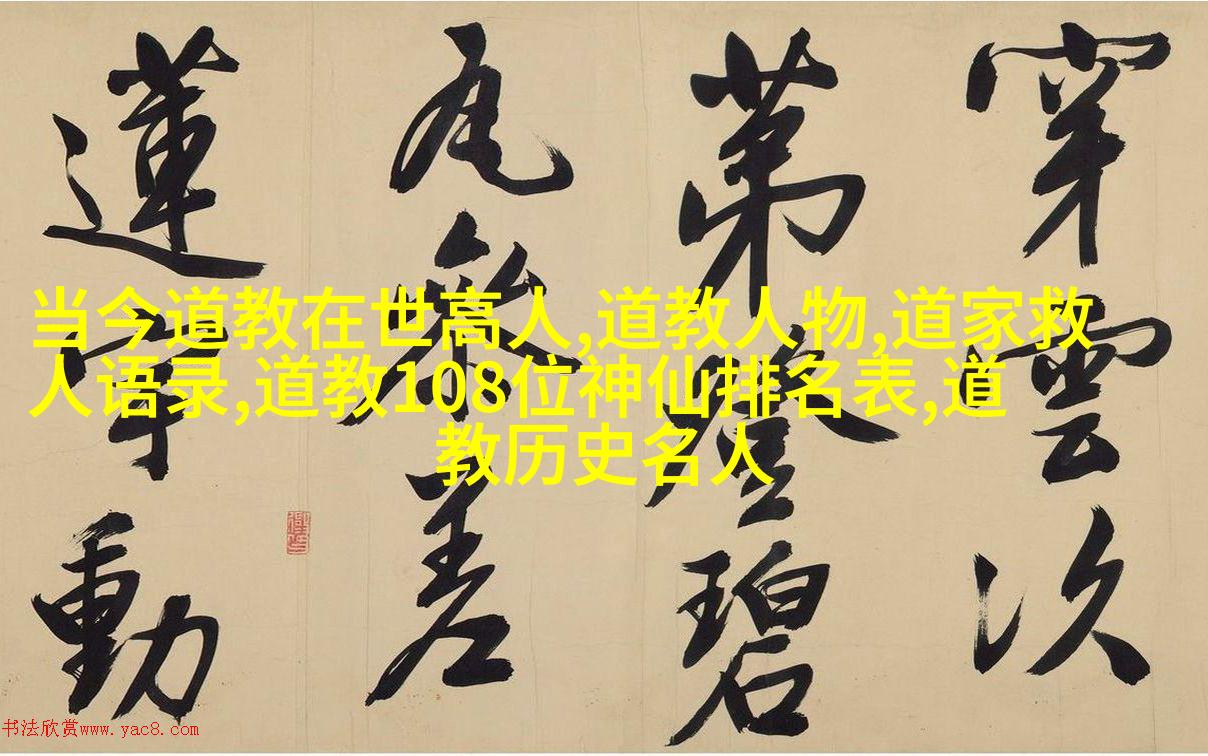 穿雲次
第登碧
瓦參差
蓮宇動
当今道教在世高人,道教人物,道家救
人语录,道教108位神仙排名表,道
教历史名人
书法欣赏www.yac8.com